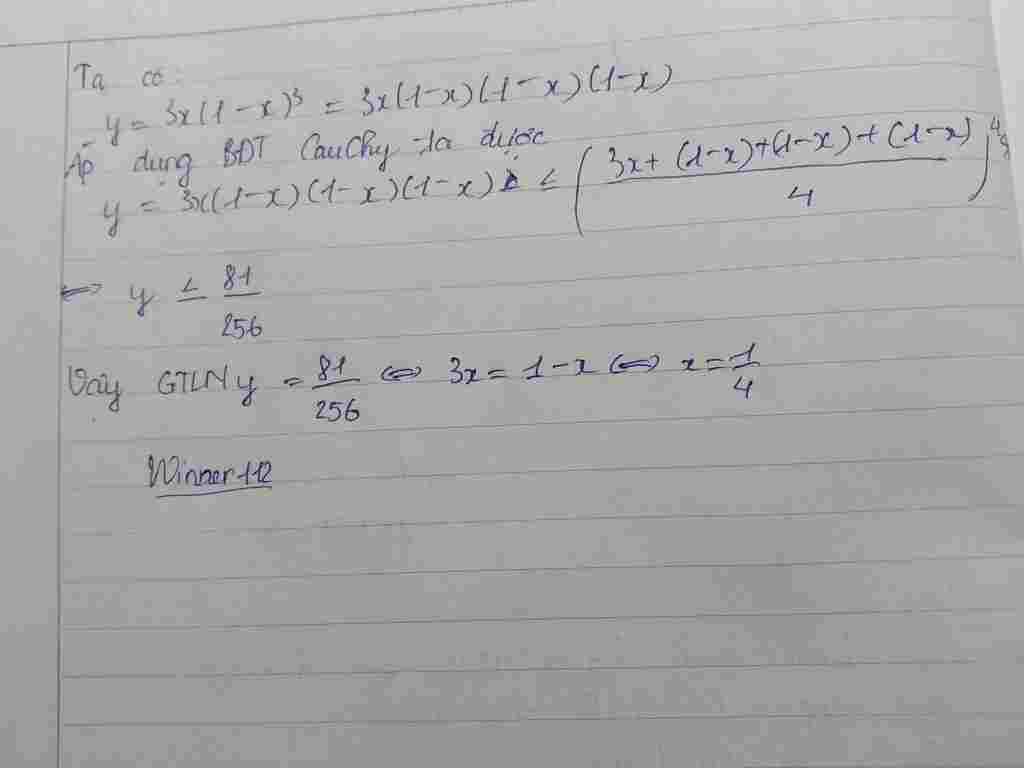 Ta có:
y = 3x(1-x)³ = 3x(1-x)(1-x)(1-x)
Áp dụng BĐT Cauchy ta được
y = 3x(1-x)(1-x)(1-x) ≤ ((3x+(1-x)+(1-x)+(1-x))/4)⁴
<=> y ≤ 81/256
Vậy GTLN y = 81/256 <=> 3x = 1-x <=> x = 1/4
Winner112